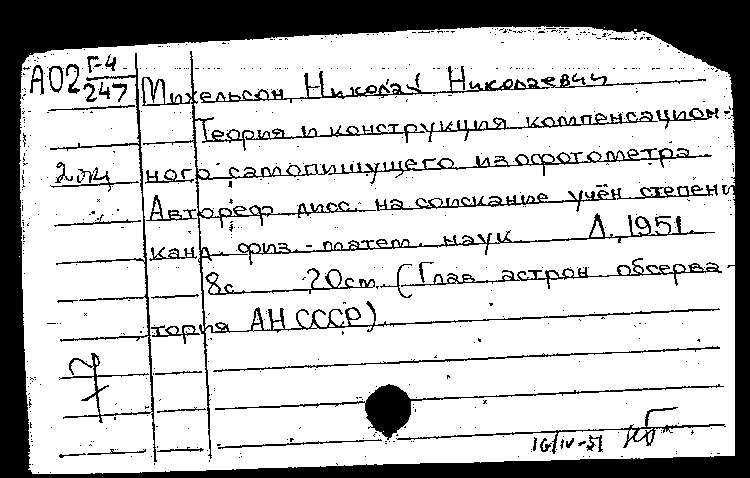 А02 Г-4
247
Михельсон, Николай Николаевич
Теория и конструкция компенсацион-
2 экз ного самопишущего изофотометра.
Автореф. дисс. на соискание учён степени
канд. физ.-матем. наук. Л., 1951.
8с. 20см. (Глав. астрон обсерва-
тория АН СССР)
16/IV-51